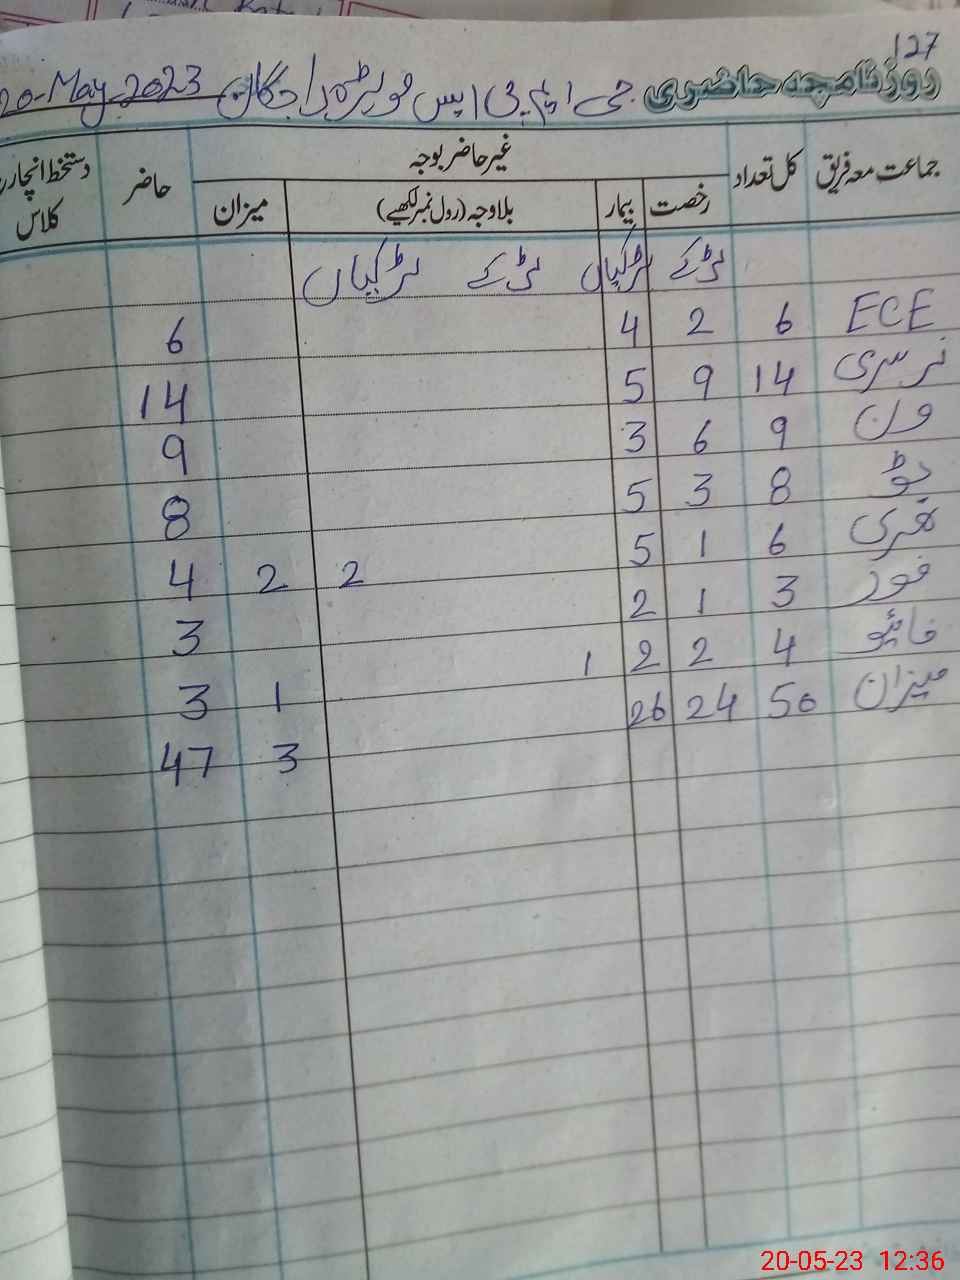 127
روزنامچہ حاضری جی ایم پی ایس 20-May-2023
جماعت معہ فریق کل تعداد غیر حاضر بوجہ حاضر دستخط انچارج کلاس
رخصت بیمار بلاوجہ (رول نمبر لکھیے) میزان
لڑکے لڑکیاں لڑکے لڑکیاں
ECE 6 2 4 6
نرسری 14 9 5 14
ون 9 6 3 9
ٹو 8 3 5 8
تھری 6 1 5 2 2 4
فور 3 1 2 3
فائیو 4 2 2 1 1 3
میزان 50 24 26 3 47
20-05-23 12:36